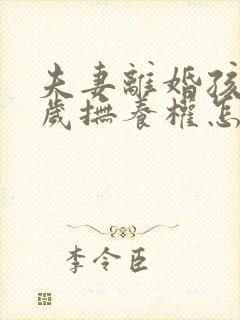 夫妻離婚孩
歲撫養權怎
李令臣